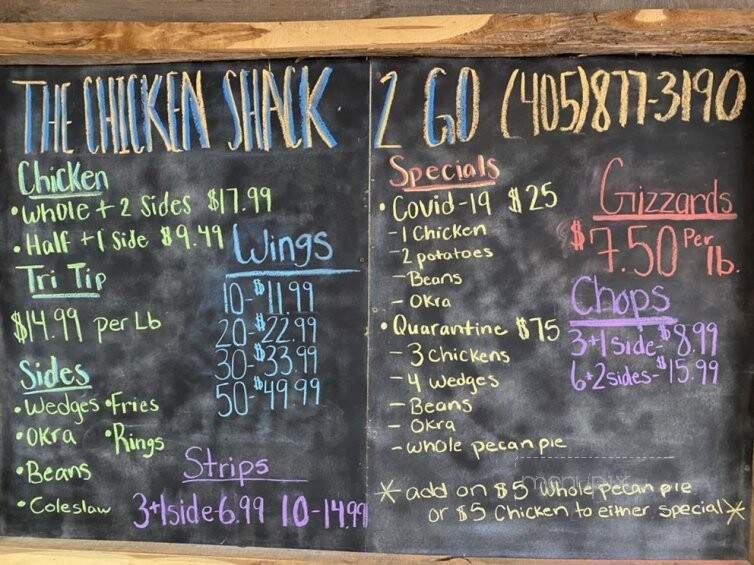 THE CHICKEN SHACK 2 GO (405)877-3190
Chicken
• Whole + 2 Sides $17.99
• Half + 1 Side $9.49
Tri Tip
$14.99 per Lb
Sides
• Wedges • Fries
• OKra • Rings
• Beans
• Coleslaw
Wings
10-$11.99
20-$22.99
30-$33.99
50-$49.99
Strips
3+1side-6.99 10-14.99
Specials
• Covid-19 $25
- 1 Chicken
- 2 potatoes
- Beans
- OKra
• Quarantine $75
- 3 chickens
- 4 wedges
- Beans
- Okra
- whole pecan pie
Gizzards
$7.50 Per lb.
Chops
3+1side-$8.99
6+2sides-$15.99
* add on $5 whole pecan pie
or $5 Chicken to either special *